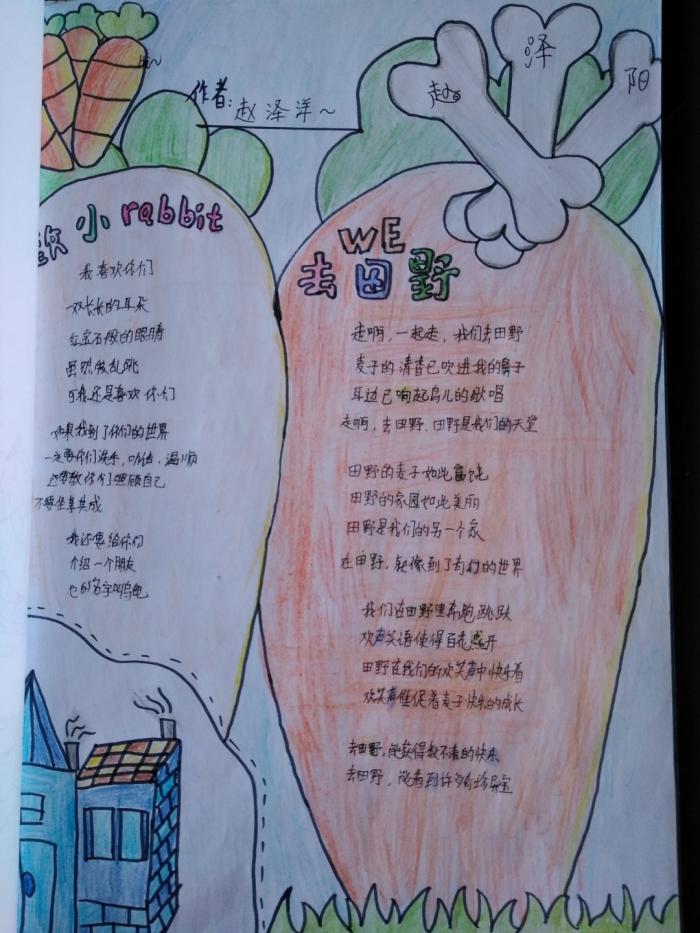 作者: 赵泽洋~
赵
泽
阳
小 rabbit
我喜欢你们
一双长长的耳朵
红宝石般的眼睛
虽然做乱跳
可我还是喜欢你们
如果我到了你们的世界
一定要你们洗手,听话,温顺
还要教你们照顾自己
不要坐享其成
我还要给你们
介绍一个朋友
它的名字叫乌龟
WE
去田野
走啊,一起走,我们去田野
麦子的清香已吹进我的鼻子
耳边已响起鸟儿的歌唱
走啊,去田野,田野是我们的天堂
田野的麦子如此富饶
田野的家园如此美丽
田野是我们的另一个家
在田野,就像到了奇幻的世界
我们在田野里奔跑跳跃
欢声笑语使得百花盛开
田野在我们的欢笑声中快乐着
欢笑声催促着麦子快乐的成长
去田野,能获得数不清的快乐
去田野,能看到许多奇珍异宝